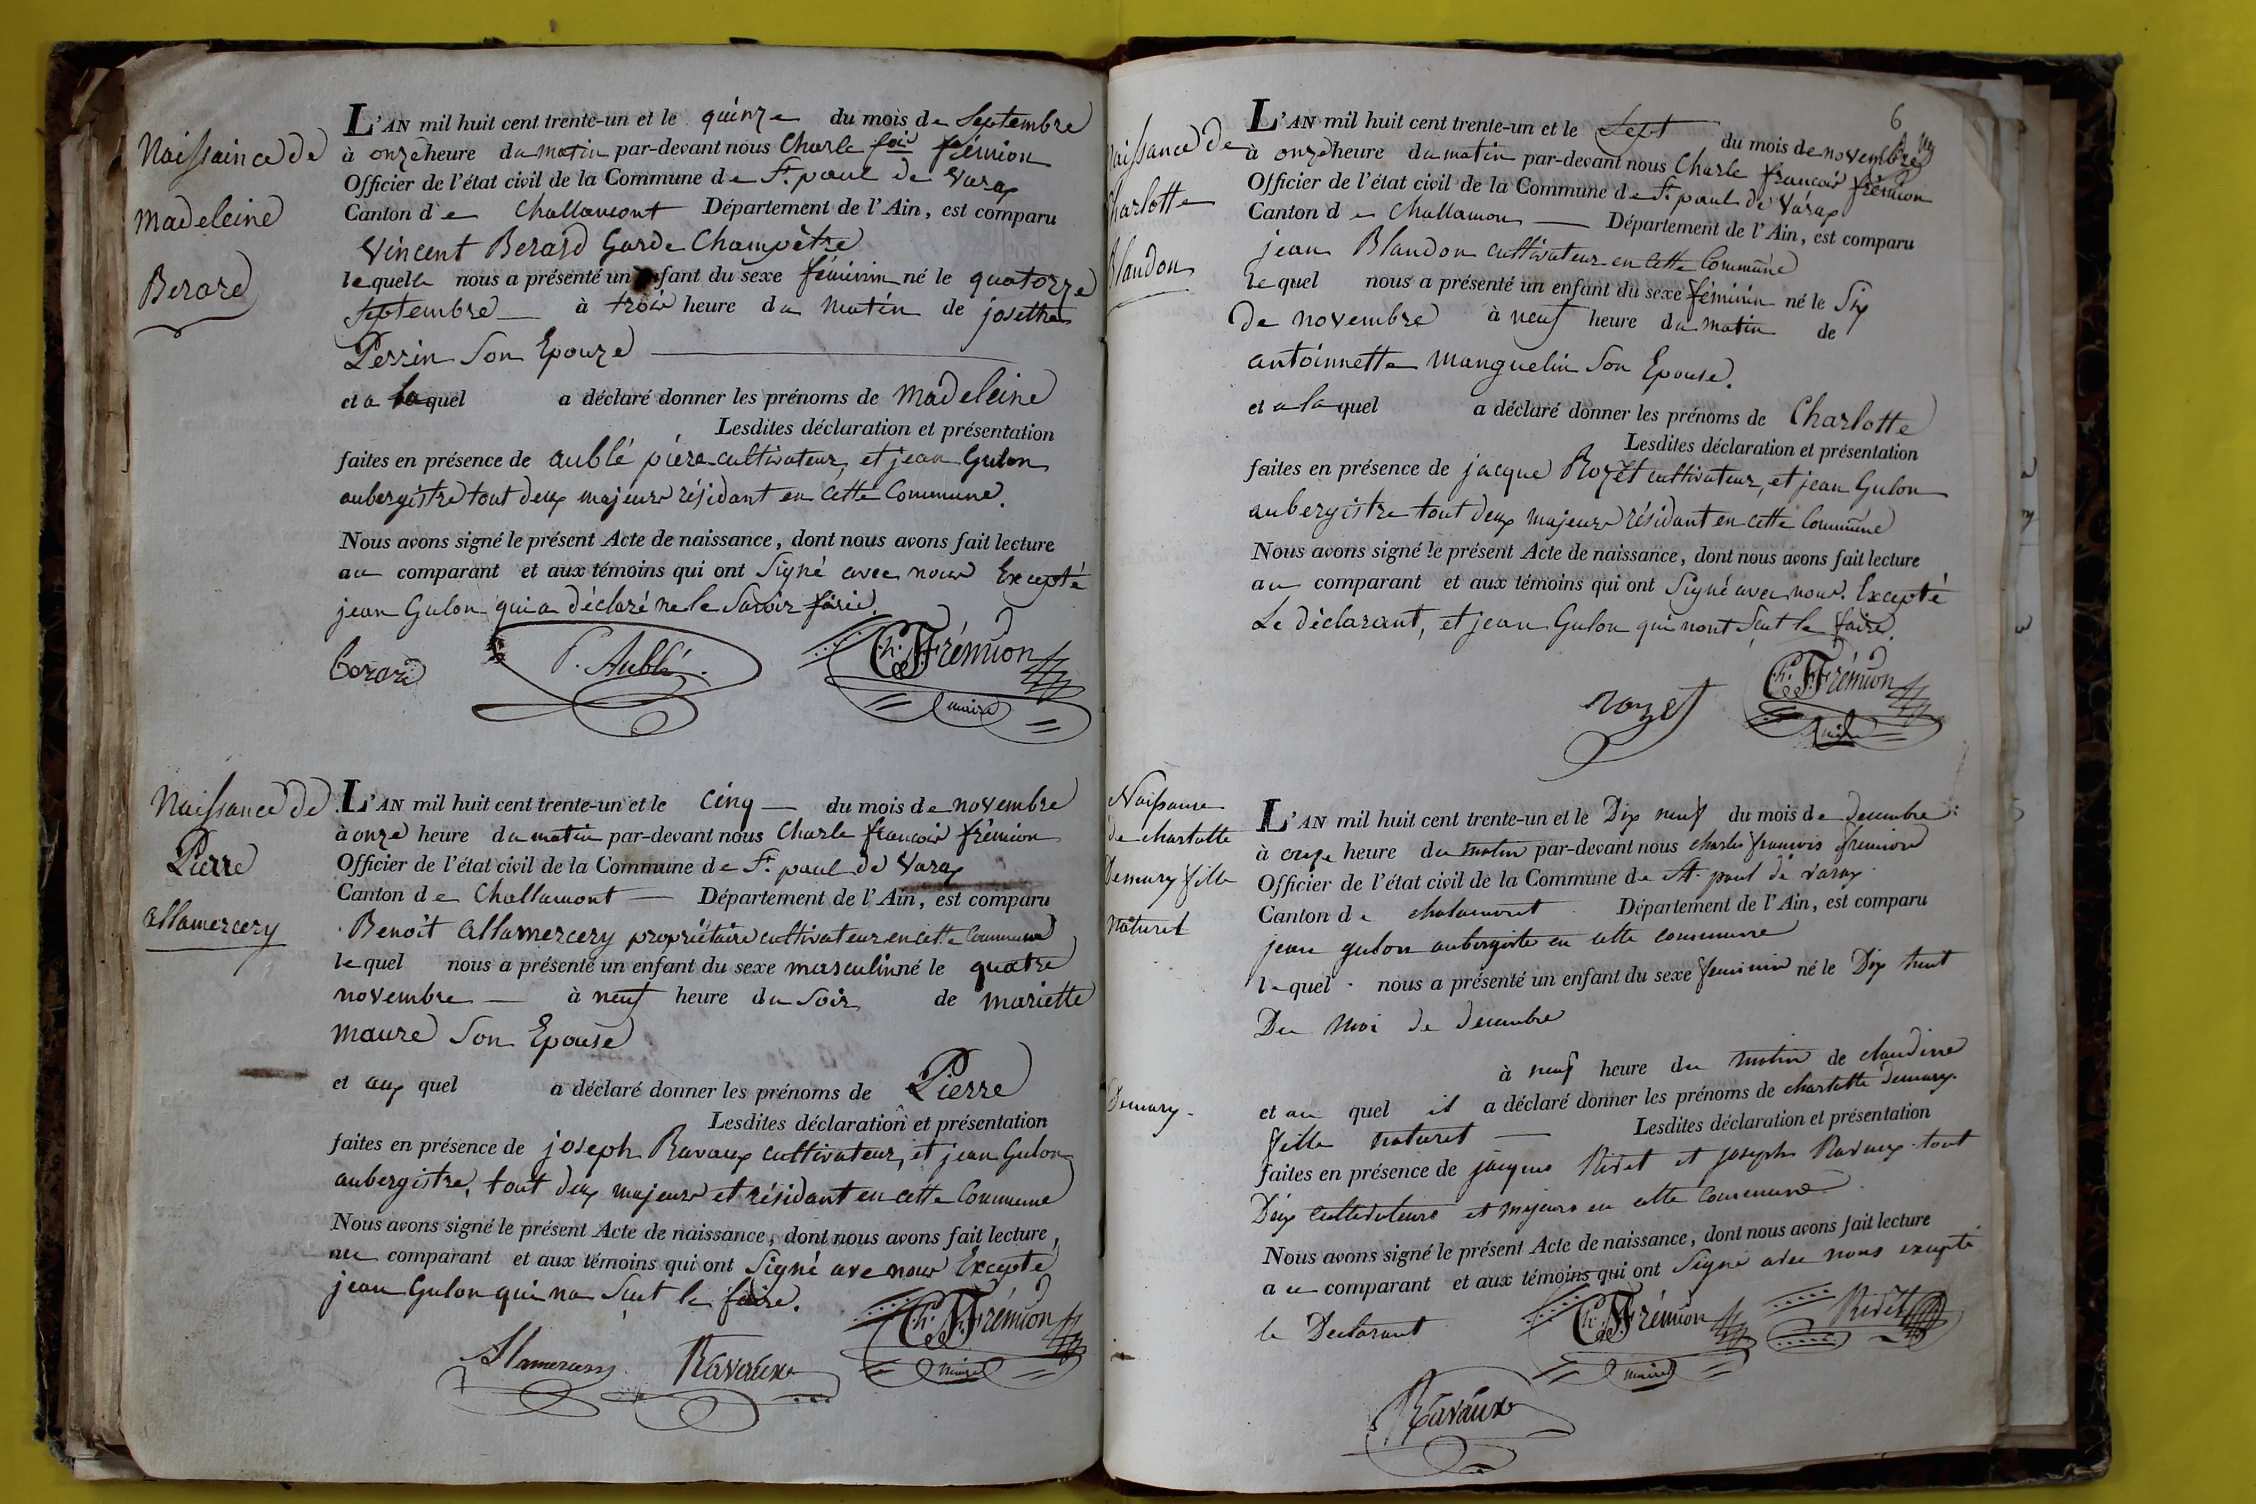 Naissaince de
Madeleine
Berard
L'AN mil huit cent trente-un et le quinze du mois de Septembre
à onze heure du matin par-devant nous Charle fois frémion
Officier de l'état civil de la Commune de St. paul de Varax
Canton de Challamont Département de l'Ain, est comparu
Vincent Berard Garde Champètre
lequelle nous a présenté un enfant du sexe féminin né le quatorze
Septembre à trois heure du matin de josette
Perrin Son Epouze
et a la quel a déclaré donner les prénoms de Madeleine
Lesdites déclaration et présentation
faites en présence de aublé piere cultivateur, et jean Gulon
aubergistre tout deux majeure résidant en cette Commune.
Nous avons signé le présent Acte de naissance, dont nous avons fait lecture
au comparant et aux témoins qui ont Signé avec nous Excepté
jean Gulon qui a déclaré ne le Savoir faire.
berard P. Aublé. Ch. F. Frémion
maire
Naissance de
Pierre
allamercery
L'AN mil huit cent trente-un et le cinq du mois de novembre
à onze heure du matin par-devant nous Charle francois frémion
Officier de l'état civil de la Commune de St. paul de Varax
Canton de Challamont Département de l'Ain, est comparu
Benoit allamercery propriétaire cultivateur en cette Commune
lequel nous a présenté un enfant du sexe masculin né le quatre
novembre à neuf heure du Soir de mariette
maure Son Epouse
et aux quel a déclaré donner les prénoms de Pierre
Lesdites déclaration et présentation
faites en présence de joseph Ravaux cultivateur, et jean Gulon
aubergistre, tout deux majeure et résidant en cette Commune
Nous avons signé le présent Acte de naissance, dont nous avons fait lecture,
au comparant et aux témoins qui ont Signé ave nous Excepté
jean Gulon qui na Seut le faire.
Ch. F. Frémion
Ravaux maire
6
Naissance de
Charlotte
Blandon
L'AN mil huit cent trente-un et le Sept du mois de novembre
à onze heure du matin par-devant nous Charle francois frémion
Officier de l'état civil de la Commune de St. paul de Varax
Canton de Challamon Département de l'Ain, est comparu
jean Blandon cultivateur en cette Commune
lequel nous a présenté un enfant du sexe féminin né le Six
de novembre à neuf heure du matin de
antoinnette Manguelin Son Epouse.
et a la quel a déclaré donner les prénoms de Charlotte
Lesdites déclaration et présentation
faites en présence de jacque Rozet cultivateur, et jean Gulon
aubergistre tout deux majeure résidant en cette Commune
Nous avons signé le présent Acte de naissance, dont nous avons fait lecture
au comparant et aux témoins qui ont Signé avec nous. Excepté
Le déclarant, et jean Gulon qui nont Seut le faire.
Ch. F. Frémion
Naissance
de charlotte
Demury fille
naturel
Demury.
L'AN mil huit cent trente-un et le Dix neuf du mois de decembre
à onze heure du matin par-devant nous charles francois fremion
Officier de l'état civil de la Commune de St. paul de varax
Canton de chalamont Département de l'Ain, est comparu
jean gulon aubergiste en cette commune
lequel nous a présenté un enfant du sexe feminin né le Dix huit
Du moi de decembre
à neuf heure du matin de claudine
et au quel il a déclaré donner les prénoms de charlotte Demury
fille naturel Lesdites déclaration et présentation
faites en présence de jacques Rivet et joseph Ravaux tout
Deux cultivateurs et majeurs en cette commune
Nous avons signé le présent Acte de naissance, dont nous avons fait lecture
au comparant et aux témoins qui ont Signé avec nous excepté
le Declarant Ch. F. Frémion Rivet
maire
Ravaux